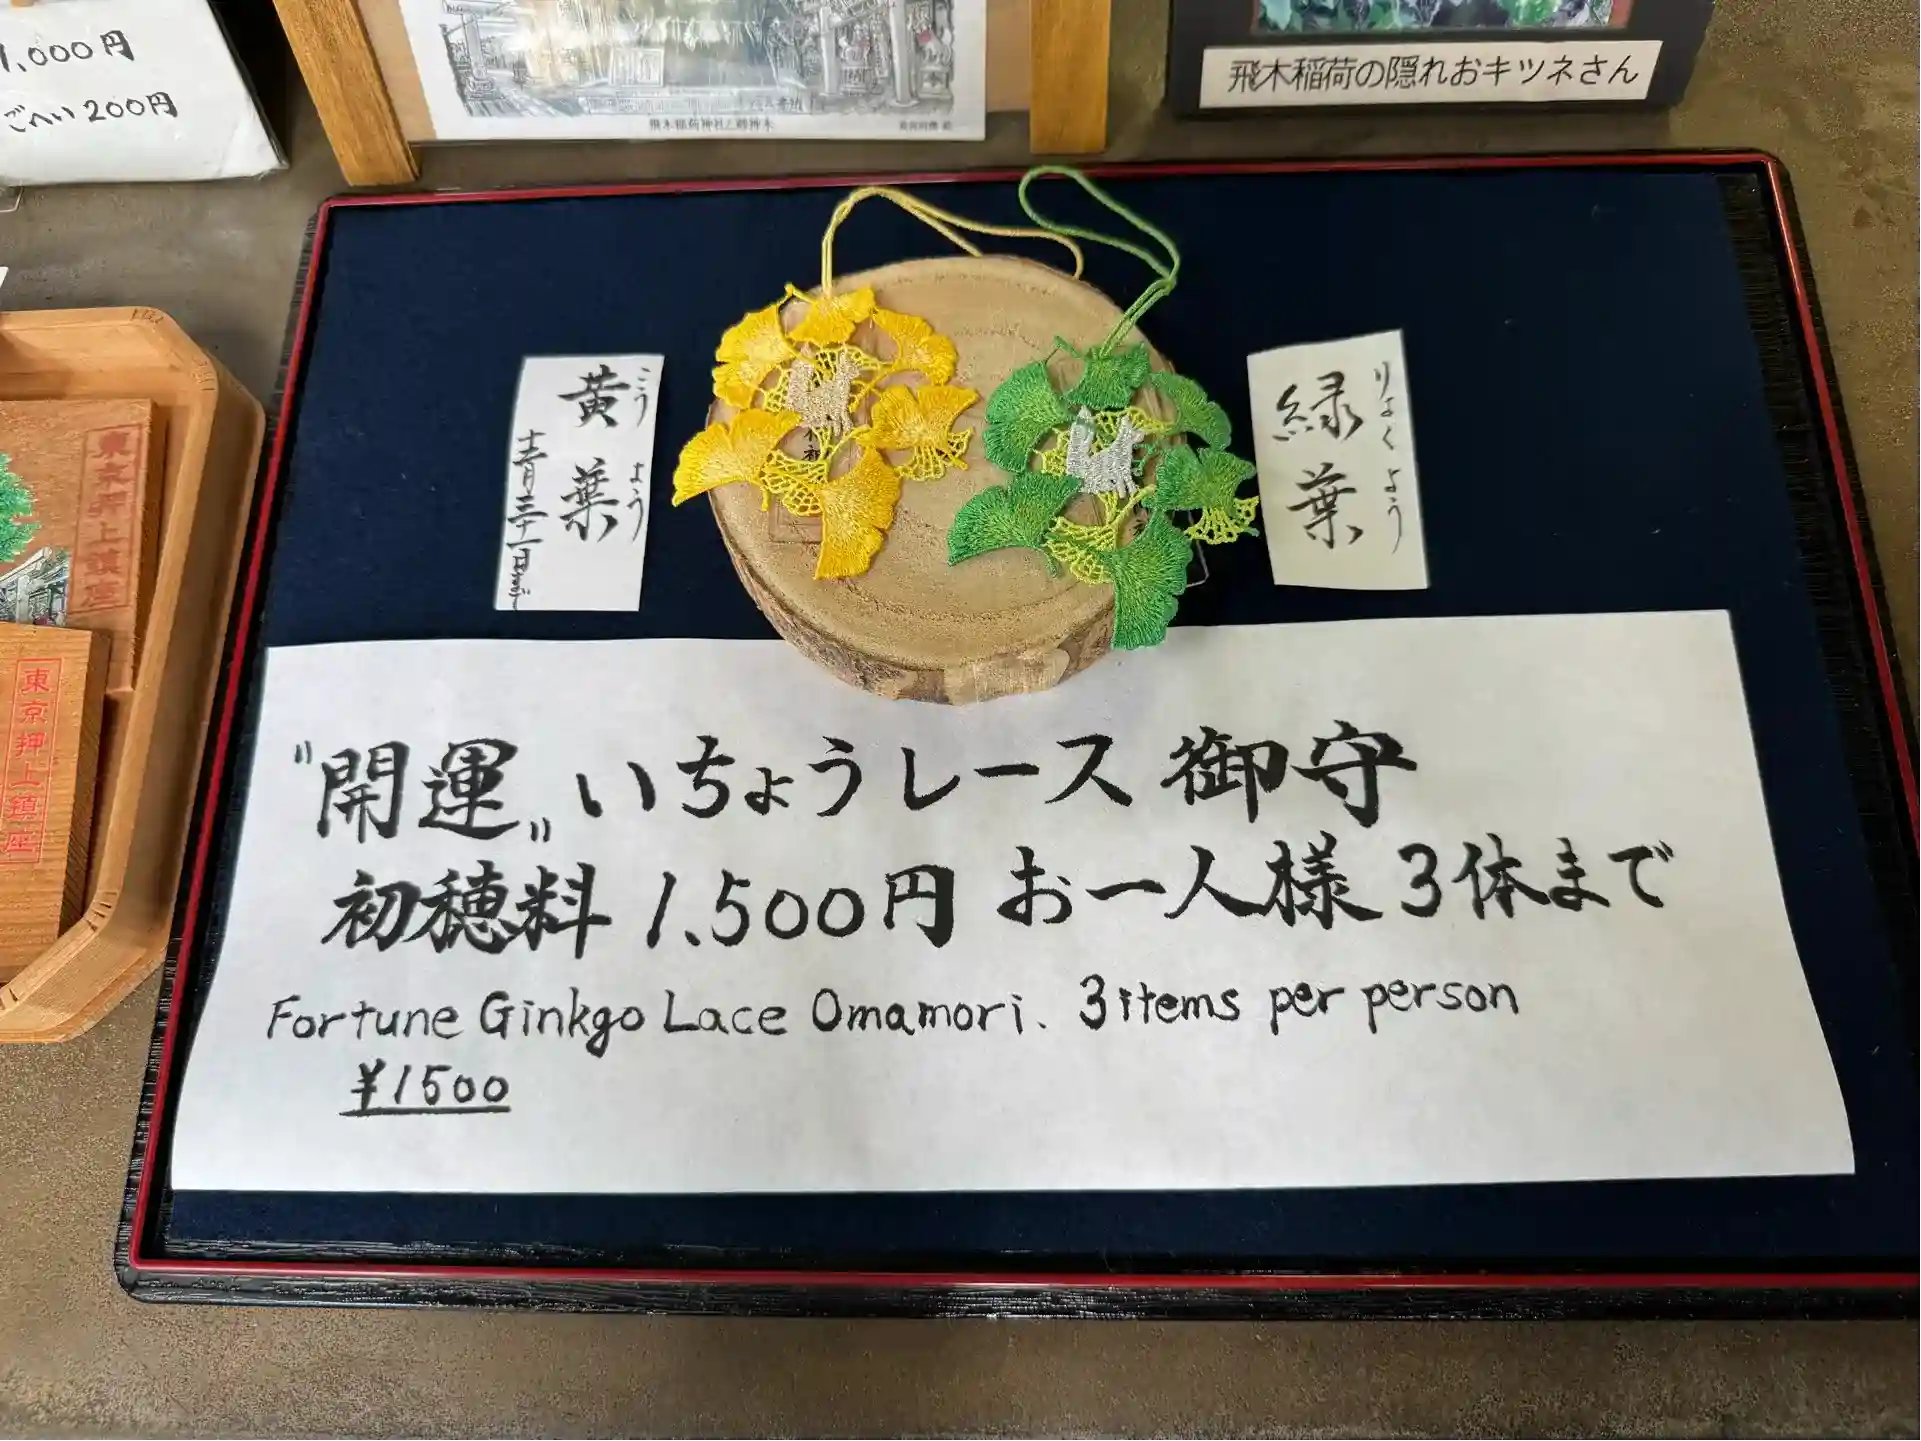 1,000円
ごへい200円
飛木稲荷神社と御神木
飛木稲荷の隠れおキツネさん
黄葉
こうよう
緑葉
りょくよう
東京押上鎮座
東京押上鎮座
"開運" いちょうレース御守
初穂料 1,500円 お一人様3体まで
Fortune Ginkgo Lace Omamori. 3items per person
¥1500